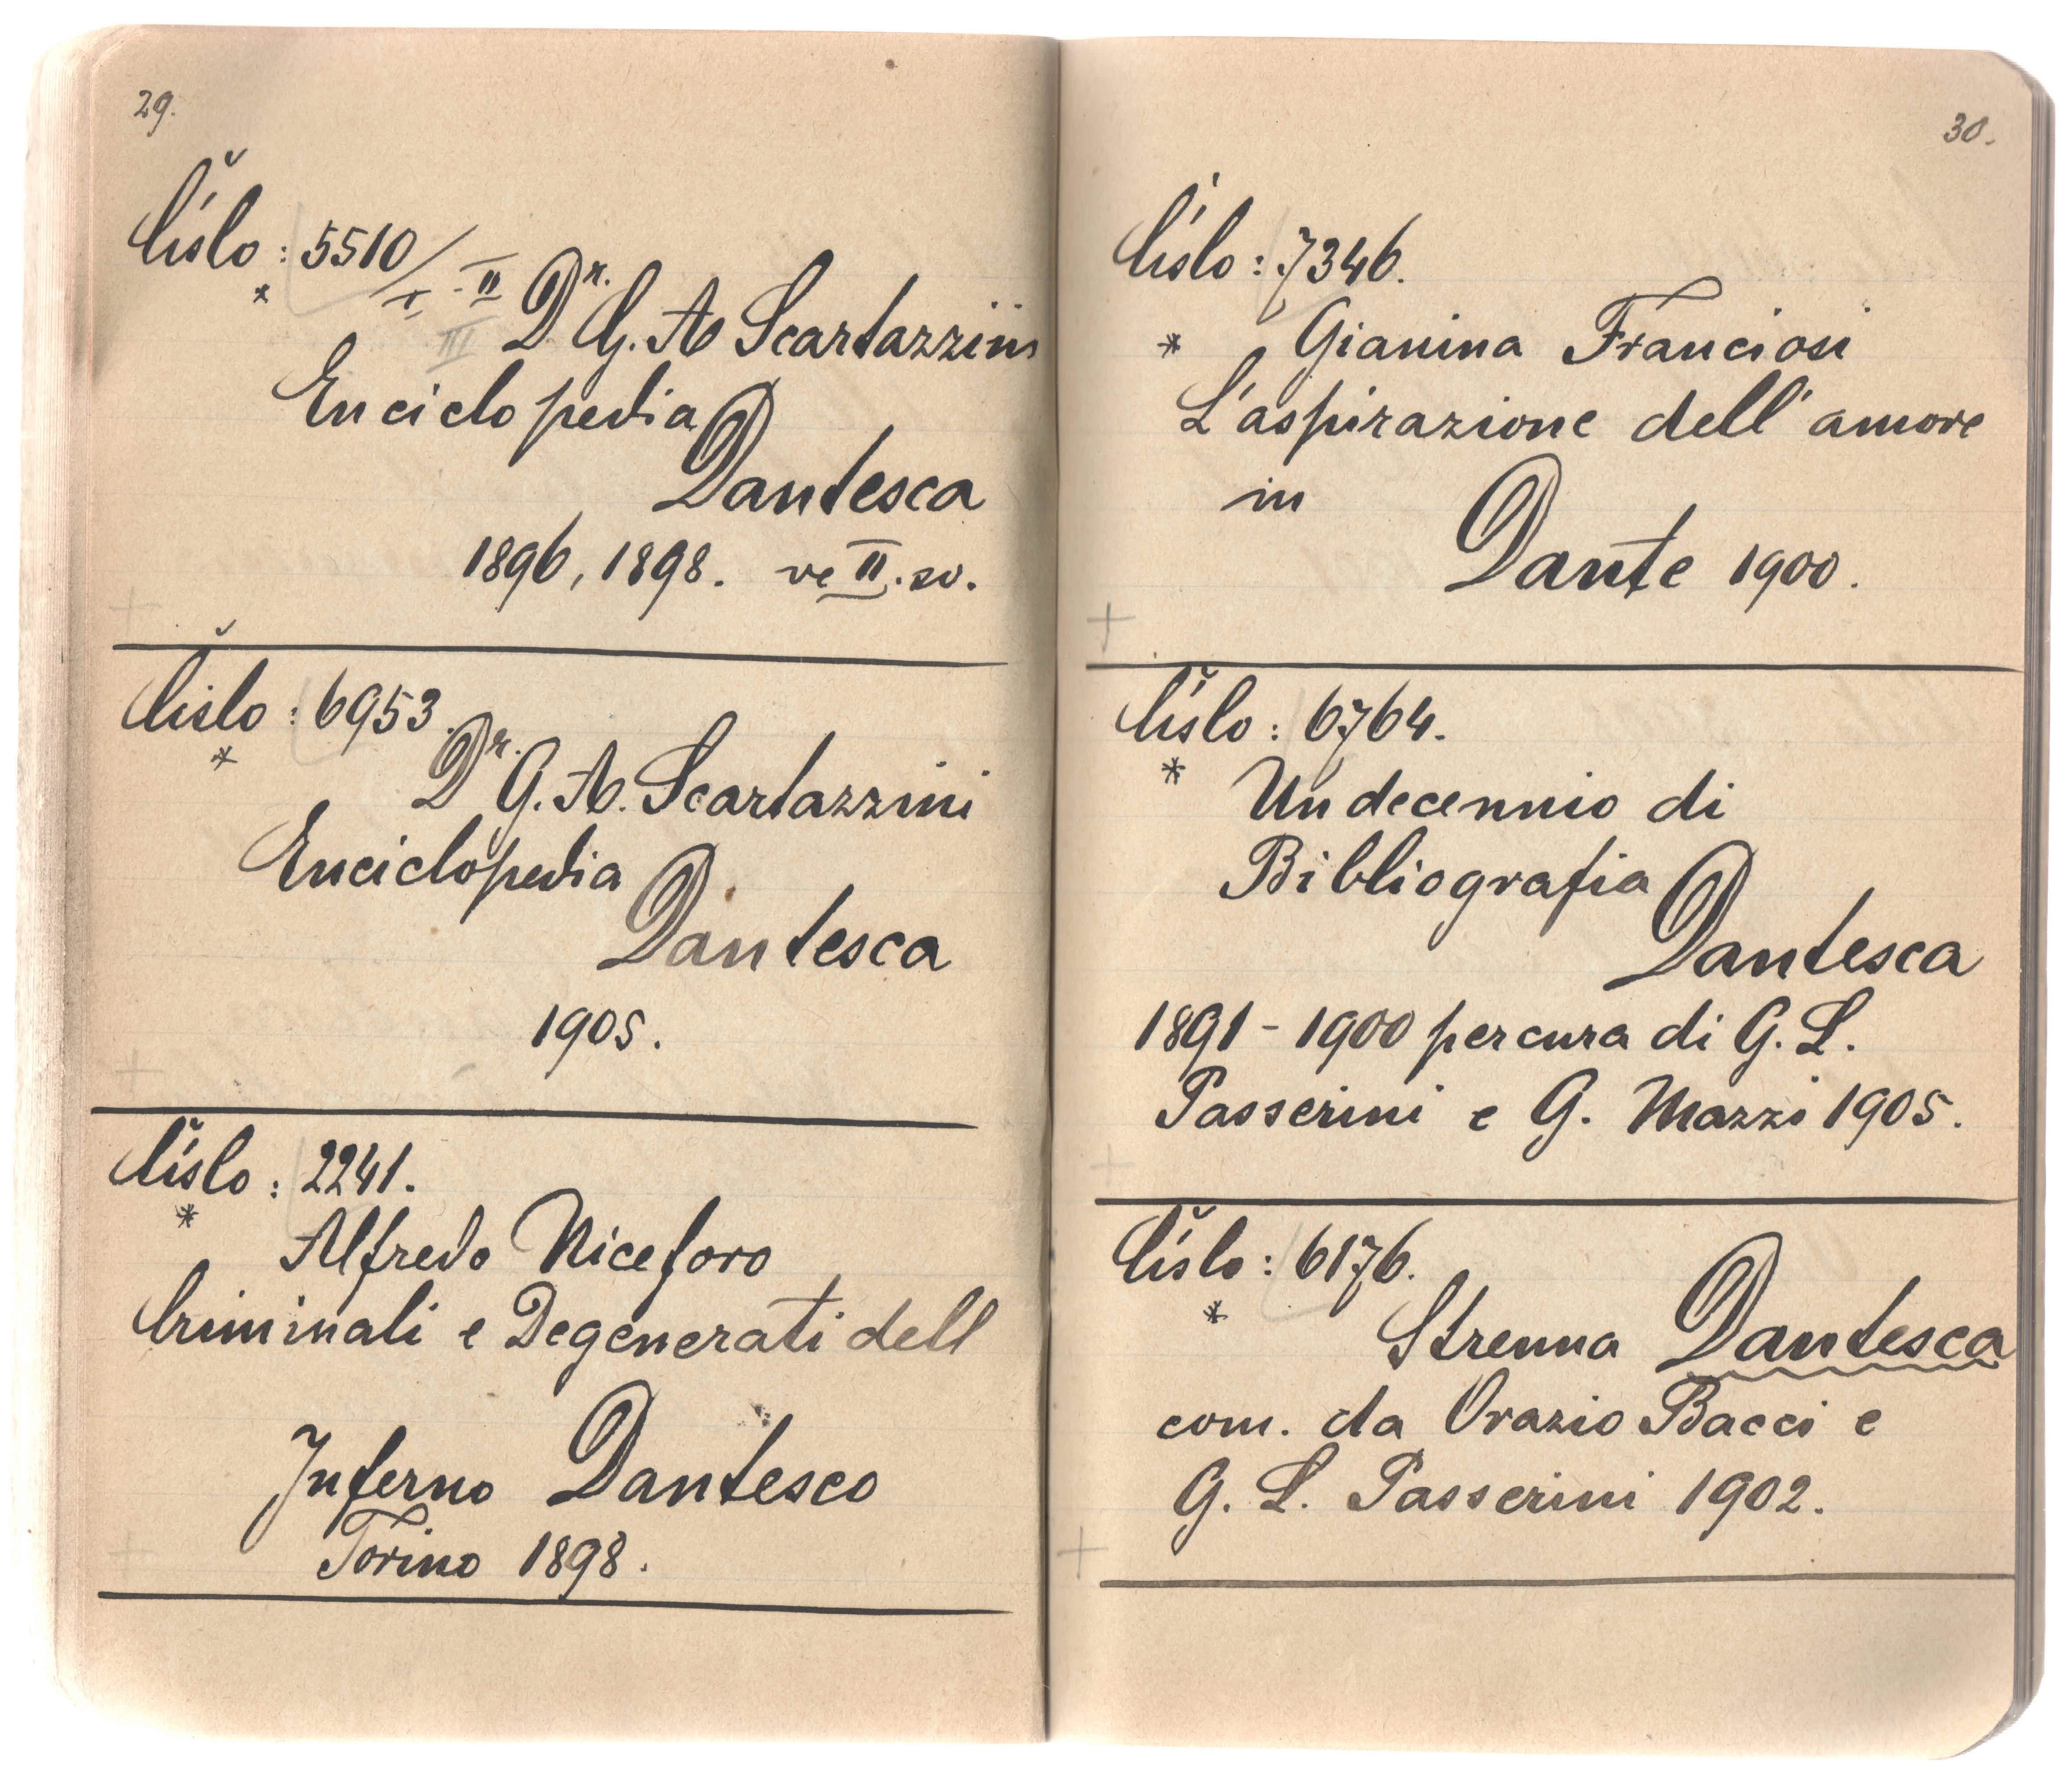 29.
Číslo: 5510/I.-II
III
*
Dr. G. A Scartazzini
Enciclopedia
Dantesca
1896, 1898. ve II. sv.
Číslo: 6953.
*
Dr. G. A. Scartazzini
Enciclopedia
Dantesca
1905.
Číslo: 2241.
*
Alfredo Niceforo
Criminali e Degenerati dell
Inferno Dantesco
Torino 1898.
30.
Číslo: 7346.
* Gianina Franciosi
L'aspirazione dell' amore
in
Dante 1900.
Číslo: 6764.
* Un decennio di
Bibliografia
Dantesca
1891-1900 per cura di G. L.
Passerini e G. Mazzi 1905.
Číslo: 6176.
*
Strenna Dantesca
com. da Orazio Bacci e
G. L. Passerini 1902.